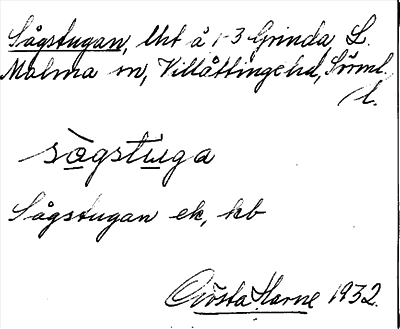 Sågstugan, lht å 1-3 Grinda, L.
Malma sn, Villåttinge hd, Sörml.
l.
sågstuga
Sågstugan ek, kb
Gösta Harne 1932.